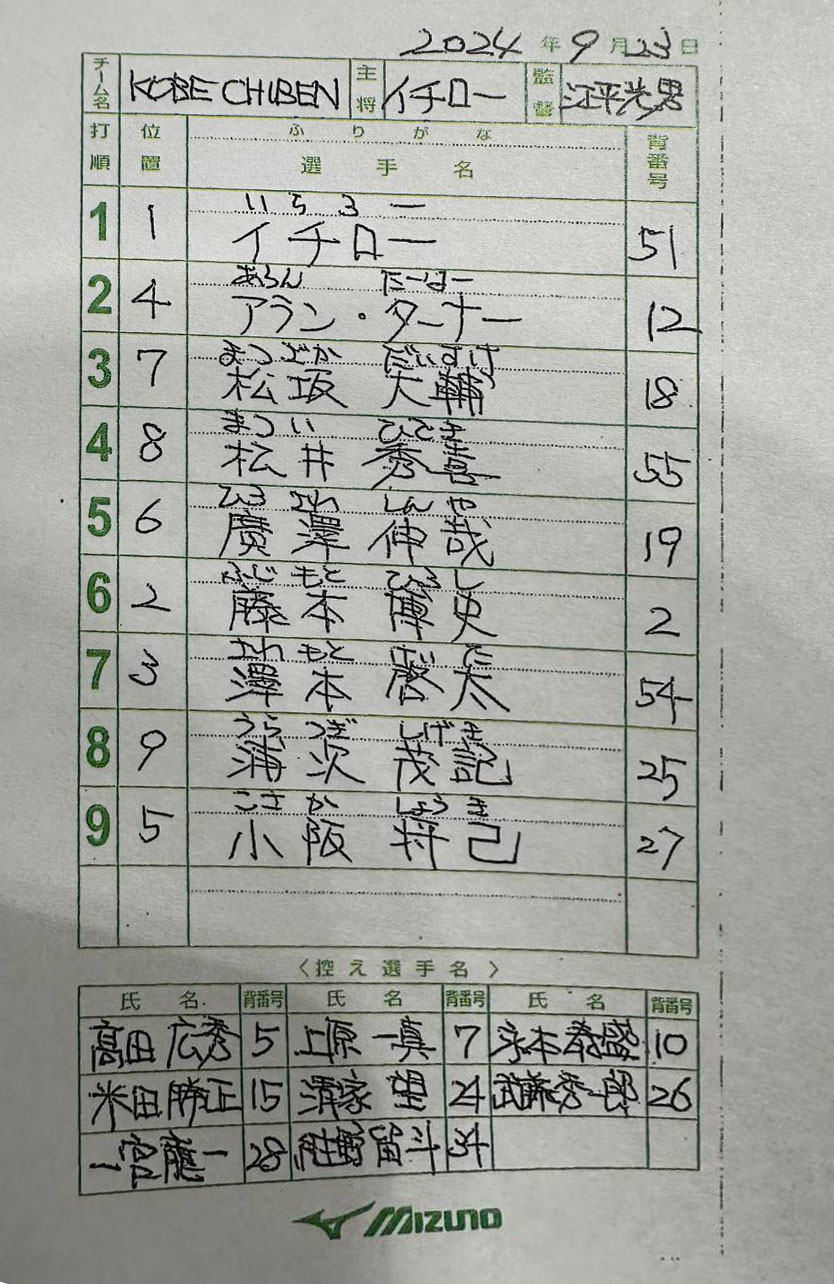 2024 年 9 月 23 日
チーム名 KOBE CHIBEN 主将 イチロー 監督 江平光男
打順 位置 ふりがな 選手名 背番号
いちろー
1 1 イチロー 51
あらん たーなー
2 4 アラン・ターナー 12
まつざか だいすけ
3 7 松坂 大輔 18
まつい ひでき
4 8 松井 秀喜 55
ひろさわ しんや
5 6 廣澤 伸哉 19
ふじもと ひろし
6 2 藤本 博史 2
さわもと けいた
7 3 澤本 啓太 54
うらつぎ しげき
8 9 浦次 茂記 25
こさか しょうき
9 5 小阪 将己 27
〈控え選手名〉
氏名 背番号 氏名 背番号 氏名 背番号
髙田 広秀 5 上原 一真 7 永本 泰盛 10
米田 勝正 15 清家 望 24 武藤秀一郎 26
一宮龍一 28 留斗 34
MIZUNO